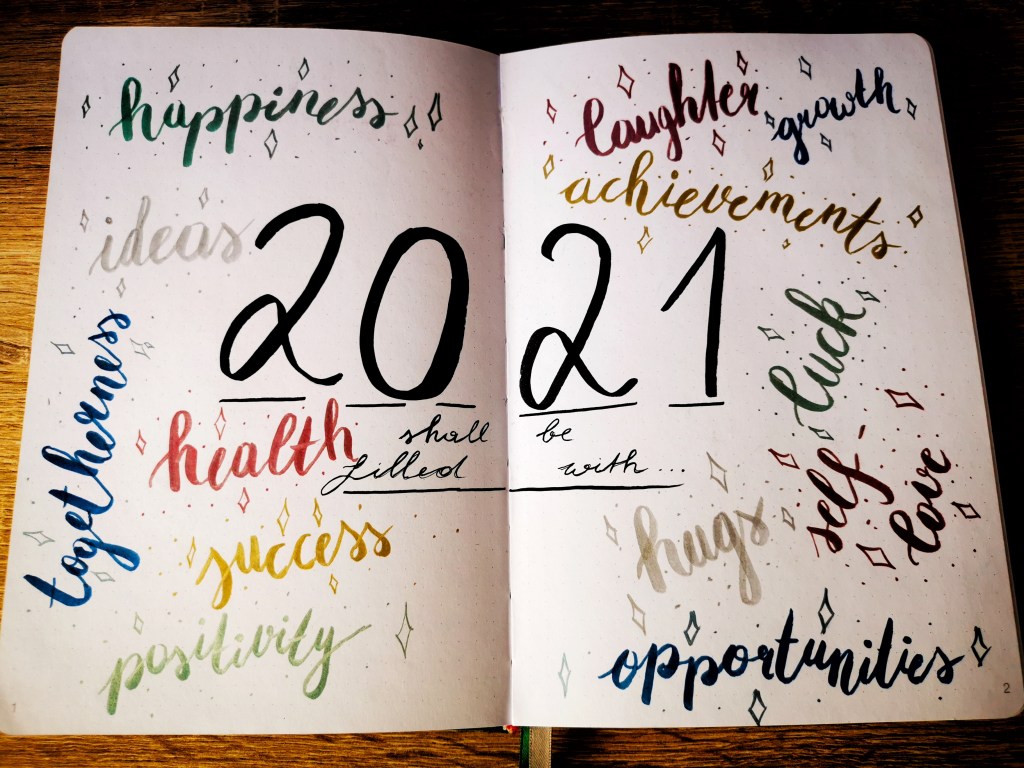 happiness
ideas
togetherness
2021
shall be
filled with...
health
success
positivity
laughter
growth
achievements
luck
self-
love
hugs
opportunities
1
2